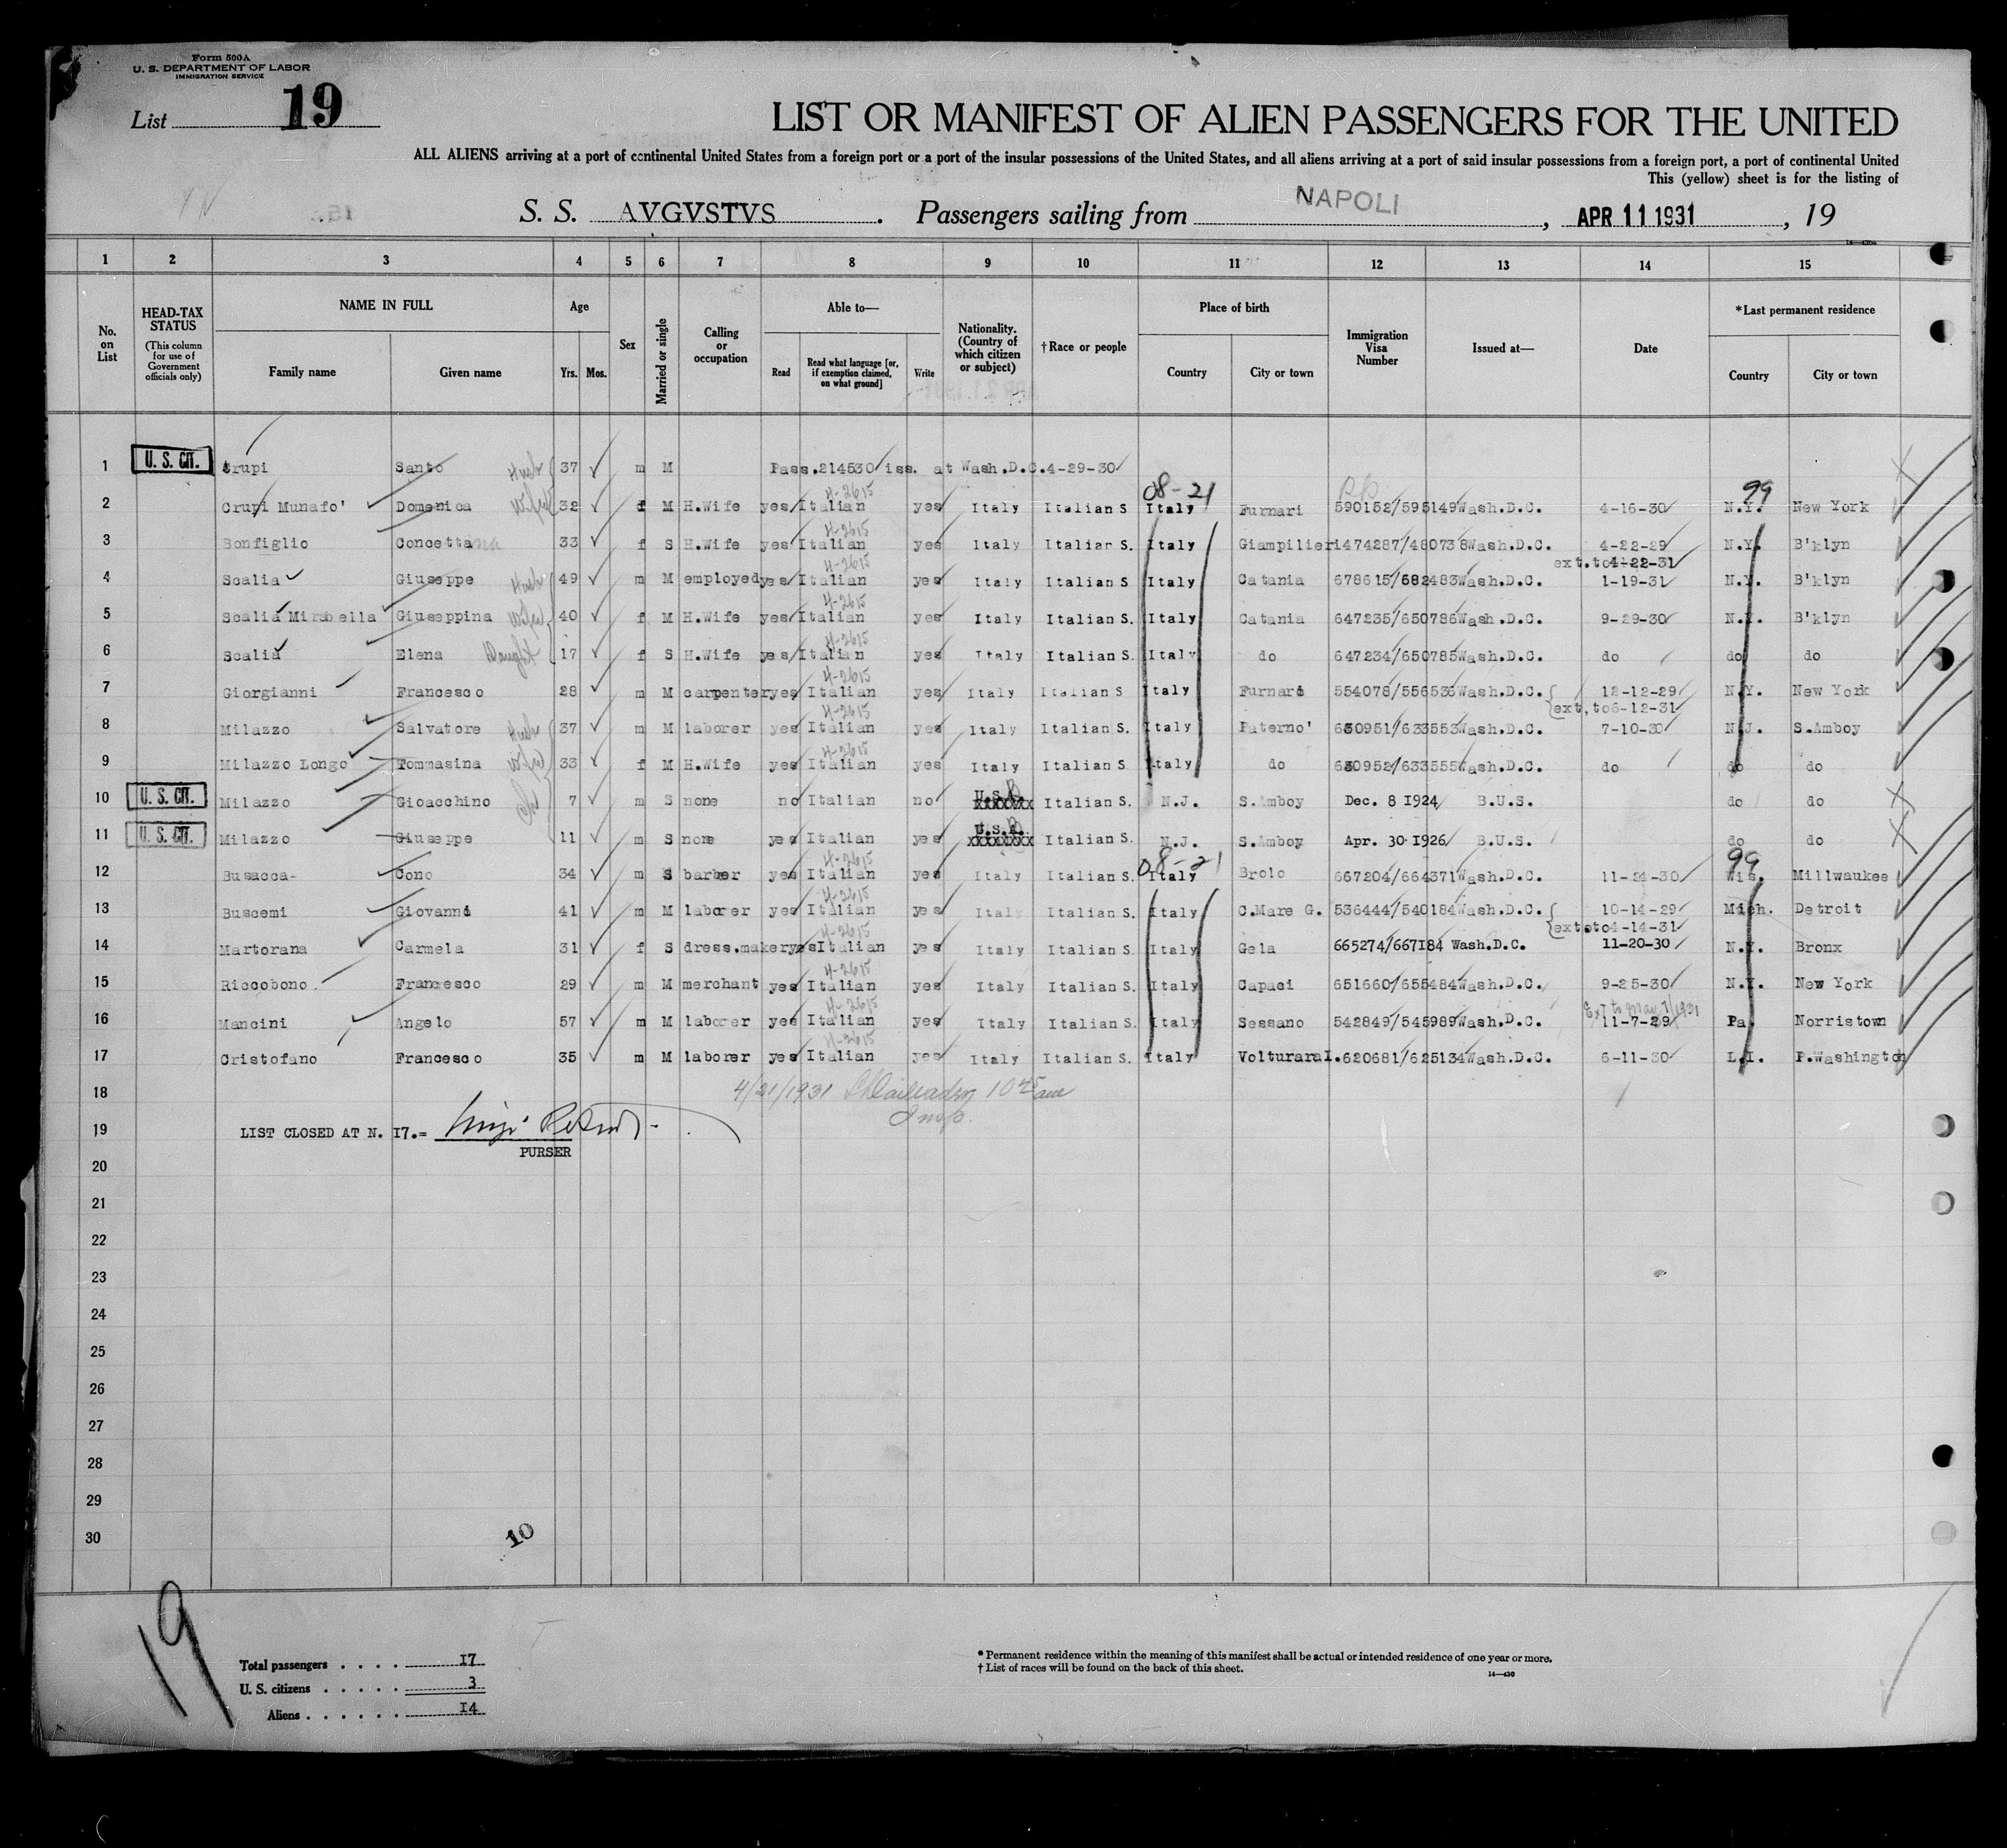 Form 500A
U. S. DEPARTMENT OF LABOR
IMMIGRATION SERVICE
List 19
LIST OR MANIFEST OF ALIEN PASSENGERS FOR THE UNITED
ALL ALIENS arriving at a port of continental United States from a foreign port or a port of the insular possessions of the United States, and all aliens arriving at a port of said insular possessions from a foreign port, a port of continental United
This (yellow) sheet is for the listing of
S. S. AVGVSTVS. Passengers sailing from NAPOLI, APR 11 1931, 19
1 2 3 4 5 6 7 8 9 10 11 12 13 14 15
No. on List
HEAD-TAX STATUS
(This column for use of Government officials only)
NAME IN FULL
Family name Given name
Age
Yrs. Mos.
Sex
Married or single
Calling or occupation
Able to—
Read Read what language [or, if exemption claimed, on what ground] Write
Nationality. (Country of which citizen or subject)
†Race or people
Place of birth
Country City or town
Immigration Visa Number
Issued at—
Date
*Last permanent residence
Country City or town
1 U. S. CIT. Crupi Santo Husb 37 m M Pass.214530 iss. at Wash.D.C.4-29-30
08-21 99
2 Crupi Munafo' Domenica Wife 32 f M H.Wife yes 4-2615 Italian yes Italy Italian S Italy Furnari 590152/595149 Wash.D.C. 4-16-30 N.Y. New York
3 Bonfiglio Concetta 33 f S H.Wife yes 4-2615 Italian yes Italy Italian S. Italy Giampilieri 474287/480738 Wash.D.C. 4-22-29 N.Y. B'klyn
ext.to 4-22-31
4 Scalia Giuseppe Husb 49 m M employed yes 4-2615 Italian yes Italy Italian S Italy Catania 678615/682483 Wash.D.C. 1-19-31 N.Y. B'klyn
5 Scalia Mirabella Giuseppina Wife 40 f M H.Wife yes 4-2615 Italian yes Italy Italian S. Italy Catania 647235/650786 Wash.D.C. 9-29-30 N.Y. B'klyn
6 Scalia Elena Daught 17 f S H.Wife yes 4-2615 Italian yes Italy Italian S. Italy do 647234/650785 Wash.D.C. do do do
7 Giorgianni Francesco 28 m M carpenter yes 4-2615 Italian yes Italy Italian S Italy Furnari 554078/556536 Wash.D.C. 12-12-29 N.Y. New York
ext.to 6-12-31
8 Milazzo Salvatore Husb 37 m M laborer yes 4-2615 Italian yes Italy Italian S. Italy Paterno' 630951/633553 Wash.D.C. 7-10-30 N.J. S.Amboy
9 Milazzo Longo Tommasina Wife 33 f M H.Wife yes 4-2615 Italian yes Italy Italian S. Italy do 630952/633555 Wash.D.C. do do do
10 U. S. CIT. Milazzo Gioacchino Ch 7 m S none no Italian no U.S.A. xxxxxxx Italian S. N.J. S.Amboy Dec. 8 1924 B.U.S. do do
11 U. S. CIT. Milazzo Giuseppe 11 m S none yes Italian yes U.S.A. xxxxxxxx Italian S. N.J. S.Amboy Apr. 30 1926 B.U.S. do do
08-21 99
12 Busacca Cono 34 m S barber yes 4-2615 Italian yes Italy Italian S. Italy Brolo 667204/664371 Wash.D.C. 11-24-30 Wis. Millwaukee
13 Buscemi Giovanni 41 m M laborer yes 4-2615 Italian yes Italy Italian S. Italy C.Mare G. 536444/540184 Wash.D.C. 10-14-29 Mich. Detroit
ext.to 4-14-31
14 Martorana Carmela 31 f S dress.maker yes 4-2615 Italian yes Italy Italian S. Italy Gela 665274/667184 Wash.D.C. 11-20-30 N.Y. Bronx
15 Riccobono Francesco 29 m M merchant yes 4-2615 Italian yes Italy Italian S. Italy Capaci 651660/655484 Wash.D.C. 9-25-30 N.Y. New York
Ext to May 7/1931
16 Mancini Angelo 57 m M laborer yes 4-2615 Italian yes Italy Italian S. Italy Sessano 542849/545989 Wash.D.C. 11-7-29 Pa. Norristown
17 Cristofano Francesco 35 m M laborer yes 4-2615 Italian yes Italy Italian S. Italy Volturara I. 620681/625134 Wash.D.C. 6-11-30 L.I. P.Washington
18 4/21/1931 10 45 am
Insp.
19 LIST CLOSED AT N. 17.=
PURSER
20
21
22
23
24
25
26
27
28
29
30
10
19
Total passengers . . . . 17
U. S. citizens . . . . . 3
Aliens . . . . . . 14
* Permanent residence within the meaning of this manifest shall be actual or intended residence of one year or more.
† List of races will be found on the back of this sheet.
14—430